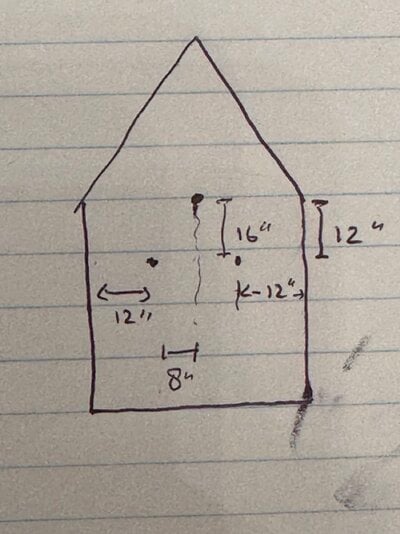 16"
12"
12"
12"
8"